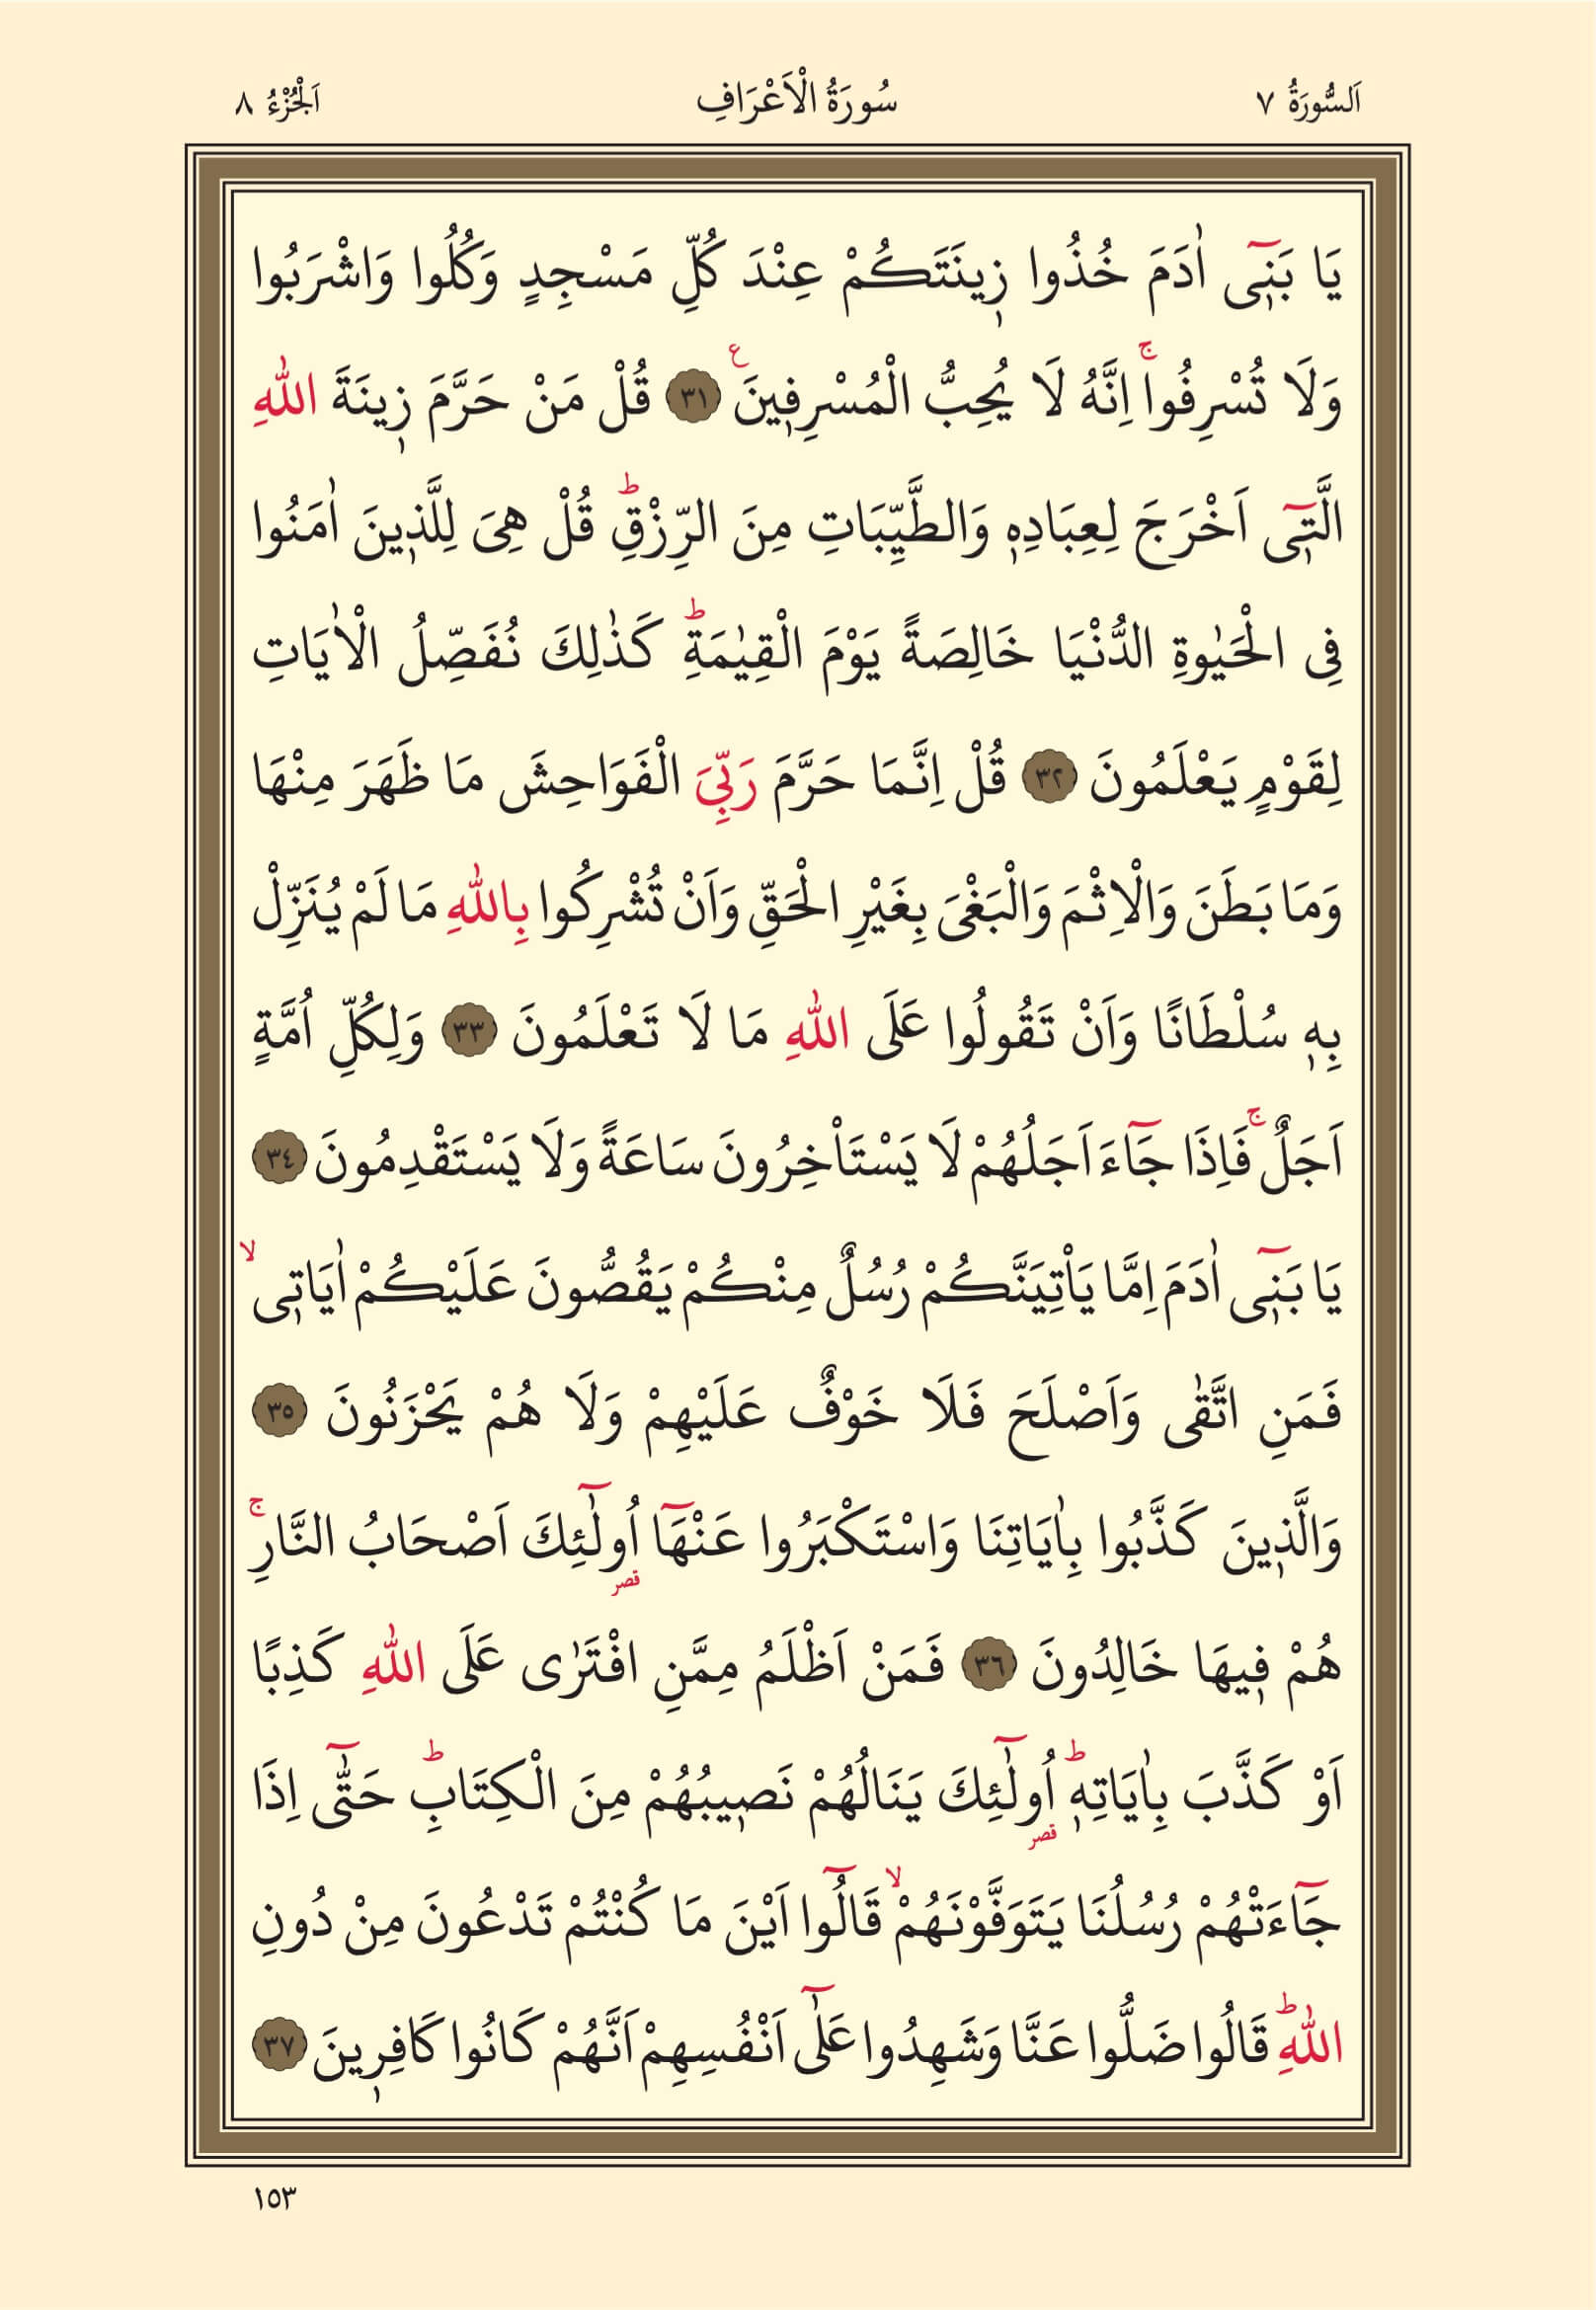 اَلسُّورَةُ ٧ سُورَةُ الْاَعْرَافِ اَلْجُزْءُ ٨
يَا بَنٖٓى اٰدَمَ خُذُوا زٖينَتَكُمْ عِنْدَ كُلِّ مَسْجِدٍ وَكُلُوا وَاشْرَبُوا
وَلَا تُسْرِفُواۚ اِنَّهُ لَا يُحِبُّ الْمُسْرِفٖينَࣖ ٣١ قُلْ مَنْ حَرَّمَ زٖينَةَ اللّٰهِ
الَّتٖٓى اَخْرَجَ لِعِبَادِهٖ وَالطَّيِّبَاتِ مِنَ الرِّزْقِؕ قُلْ هِىَ لِلَّذٖينَ اٰمَنُوا
فِى الْحَيٰوةِ الدُّنْيَا خَالِصَةً يَوْمَ الْقِيٰمَةِؕ كَذٰلِكَ نُفَصِّلُ الْاٰيَاتِ
لِقَوْمٍ يَعْلَمُونَ ٣٢ قُلْ اِنَّمَا حَرَّمَ رَبِّىَ الْفَوَاحِشَ مَا ظَهَرَ مِنْهَا
وَمَا بَطَنَ وَالْاِثْمَ وَالْبَغْىَ بِغَيْرِ الْحَقِّ وَاَنْ تُشْرِكُوا بِاللّٰهِ مَا لَمْ يُنَزِّلْ
بِهٖ سُلْطَانًا وَاَنْ تَقُولُوا عَلَى اللّٰهِ مَا لَا تَعْلَمُونَ ٣٣ وَلِكُلِّ اُمَّةٍ
اَجَلٌۚ فَاِذَا جَٓاءَ اَجَلُهُمْ لَا يَسْتَاْخِرُونَ سَاعَةً وَلَا يَسْتَقْدِمُونَ ٣٤
يَا بَنٖٓى اٰدَمَ اِمَّا يَاْتِيَنَّكُمْ رُسُلٌ مِنْكُمْ يَقُصُّونَ عَلَيْكُمْ اٰيَاتٖىۙ
فَمَنِ اتَّقٰى وَاَصْلَحَ فَلَا خَوْفٌ عَلَيْهِمْ وَلَا هُمْ يَحْزَنُونَ ٣٥
وَالَّذٖينَ كَذَّبُوا بِاٰيَاتِنَا وَاسْتَكْبَرُوا عَنْهَٓا اُو۬لٰٓئِكَ اَصْحَابُ النَّارِۚ
قصر
هُمْ فٖيهَا خَالِدُونَ ٣٦ فَمَنْ اَظْلَمُ مِمَّنِ افْتَرٰى عَلَى اللّٰهِ كَذِبًا
اَوْ كَذَّبَ بِاٰيَاتِهٖؕ اُو۬لٰٓئِكَ يَنَالُهُمْ نَصٖيبُهُمْ مِنَ الْكِتَابِؕ حَتّٰٓى اِذَا
قصر
جَٓاءَتْهُمْ رُسُلُنَا يَتَوَفَّوْنَهُمْۙ قَالُٓوا اَيْنَ مَا كُنْتُمْ تَدْعُونَ مِنْ دُونِ
اللّٰهِؕ قَالُوا ضَلُّوا عَنَّا وَشَهِدُوا عَلٰٓى اَنْفُسِهِمْ اَنَّهُمْ كَانُوا كَافِرٖينَ ٣٧
١٥٣